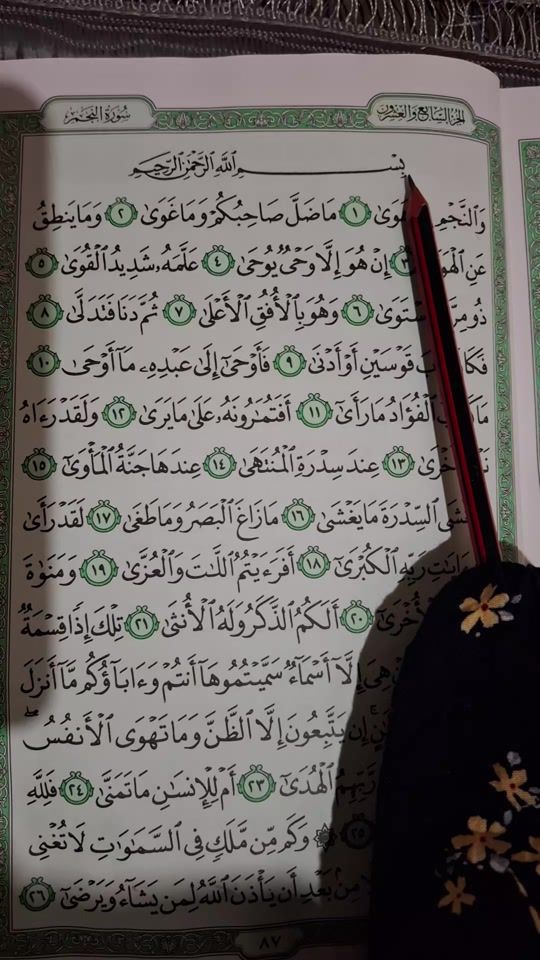 الجزء السابع والعشرون
سورة النجم
بِسْمِ اللَّهِ الرَّحْمَٰنِ الرَّحِيمِ
وَالنَّجْمِ هَوَىٰ ١ مَا ضَلَّ صَاحِبُكُمْ وَمَا غَوَىٰ ٢ وَمَا يَنطِقُ
عَنِ الْهَوَىٰ ٣ إِنْ هُوَ إِلَّا وَحْيٌ يُوحَىٰ ٤ عَلَّمَهُ شَدِيدُ الْقُوَىٰ ٥
ذُو مِرَّةٍ فَاسْتَوَىٰ ٦ وَهُوَ بِالْأُفُقِ الْأَعْلَىٰ ٧ ثُمَّ دَنَا فَتَدَلَّىٰ ٨
فَكَانَ قَابَ قَوْسَيْنِ أَوْ أَدْنَىٰ ٩ فَأَوْحَىٰ إِلَىٰ عَبْدِهِ مَا أَوْحَىٰ ١٠
مَا كَذَبَ الْفُؤَادُ مَا رَأَىٰ ١١ أَفَتُمَارُونَهُ عَلَىٰ مَا يَرَىٰ ١٢ وَلَقَدْ رَآهُ
نَزْلَةً أُخْرَىٰ ١٣ عِندَ سِدْرَةِ الْمُنتَهَىٰ ١٤ عِندَهَا جَنَّةُ الْمَأْوَىٰ ١٥
يَغْشَى السِّدْرَةَ مَا يَغْشَىٰ ١٦ مَا زَاغَ الْبَصَرُ وَمَا طَغَىٰ ١٧ لَقَدْ رَأَىٰ
آيَاتِ رَبِّهِ الْكُبْرَىٰ ١٨ أَفَرَأَيْتُمُ اللَّاتَ وَالْعُزَّىٰ ١٩ وَمَنَاةَ
الْأُخْرَىٰ ٢٠ أَلَكُمُ الذَّكَرُ وَلَهُ الْأُنثَىٰ ٢١ تِلْكَ إِذًا قِسْمَةٌ
هِيَ إِلَّا أَسْمَاءٌ سَمَّيْتُمُوهَا أَنتُمْ وَآبَاؤُكُم مَّا أَنزَلَ
إِن يَتَّبِعُونَ إِلَّا الظَّنَّ وَمَا تَهْوَى الْأَنفُسُ
رَّبِّهِمُ الْهُدَىٰ ٢٣ أَمْ لِلْإِنسَانِ مَا تَمَنَّىٰ ٢٤ فَلِلَّهِ
٢٥ وَكَم مِّن مَّلَكٍ فِي السَّمَاوَاتِ لَا تُغْنِي
مِن بَعْدِ أَن يَأْذَنَ اللَّهُ لِمَن يَشَاءُ وَيَرْضَىٰ ٢٦
٨٧